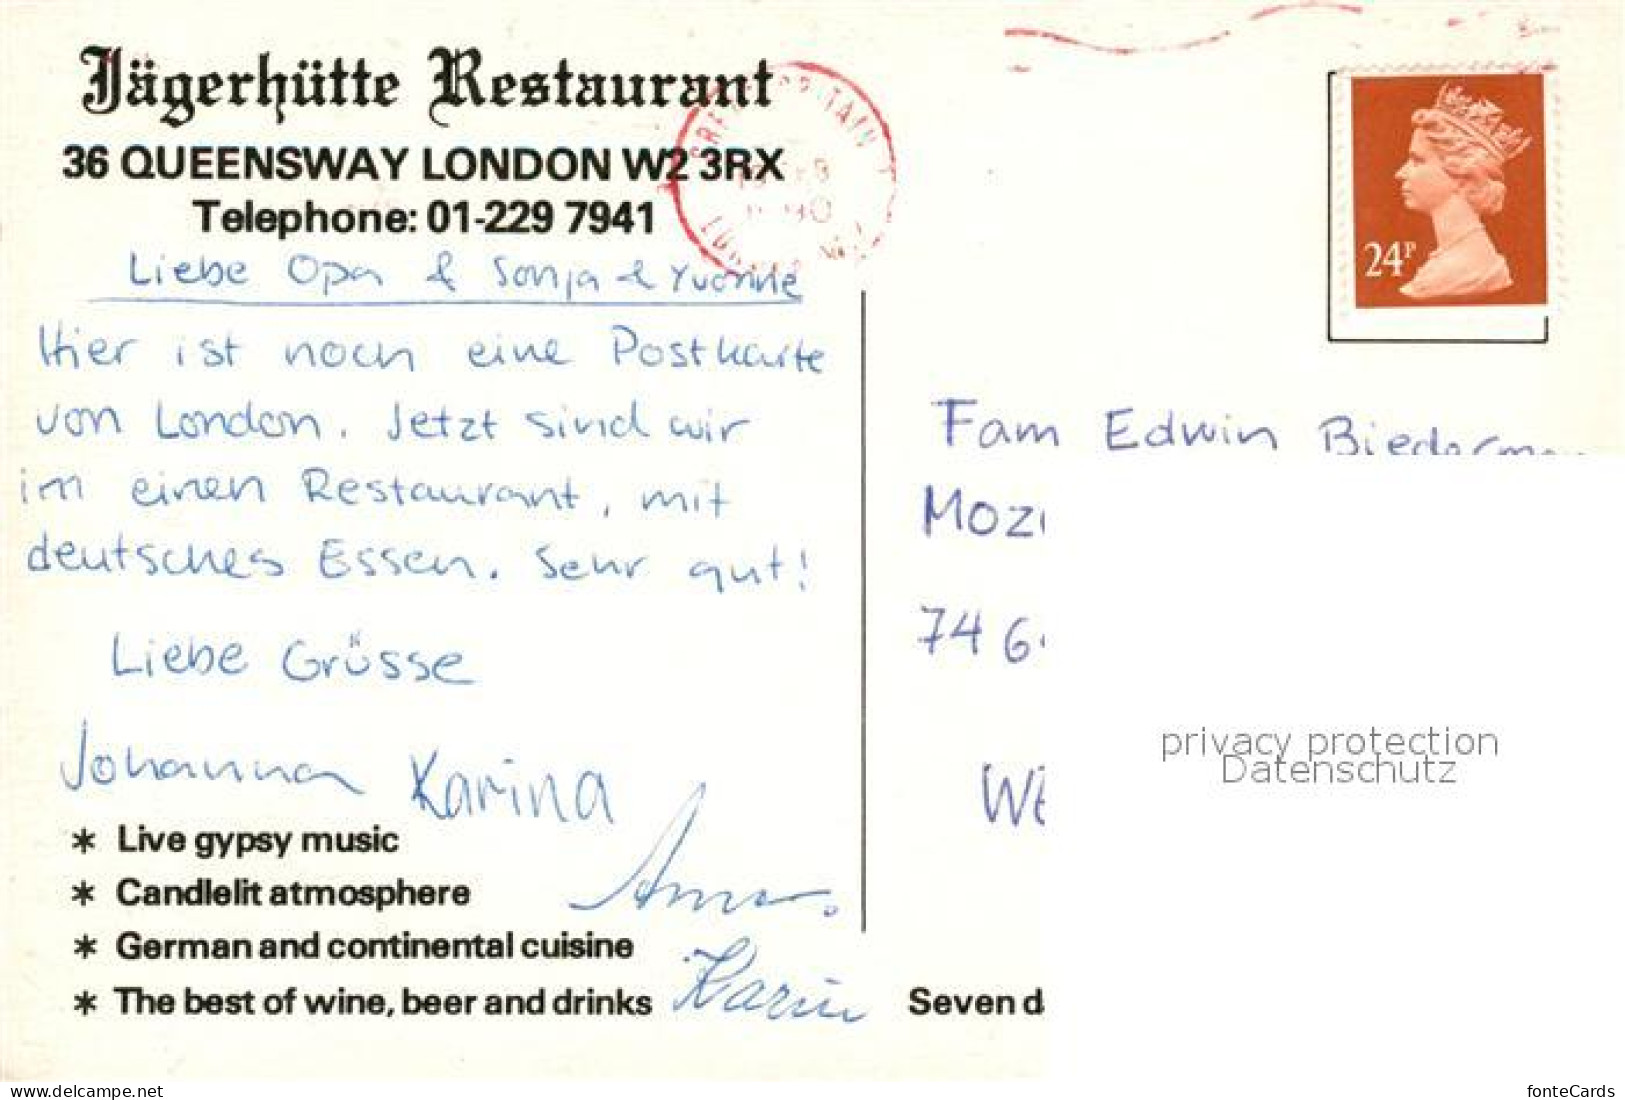 Jägerhütte Restaurant
36 QUEENSWAY LONDON W2 3RX
Telephone: 01-229 7941
Liebe Opa & Sonja & Yvonne
Hier ist noch eine Postkarte
von London. Jetzt sind wir
im einen Restaurant, mit
deutsches Essen. Sehr gut!
Liebe Grüsse
Johanna Karina
* Live gypsy music
* Candlelit atmosphere
* German and continental cuisine
* The best of wine, beer and drinks
Karin
GREAT BRITAIN
24P
Fam Edwin
Moz
74 6
WE
Seven d
privacy protection
Datenschutz
www.delcampe.net
fonteCards